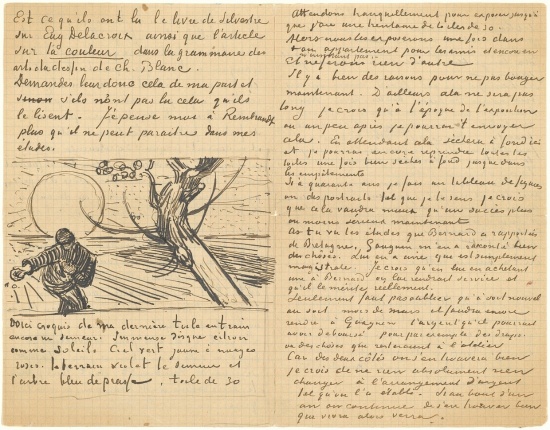 Est ce qu'ils ont lu le livre de Silvestre
sur Eug Delacroix ainsi que l'article
sur la couleur dans la grammaire des
arts du dessin de Ch. Blanc.
Demandes leur donc cela de ma part et
sinon s'ils n'ont pas lu cela qu'ils
le lisent. Je pense moi à Rembrandt
plus qu'il ne peut paraitre dans mes
études.
Voici croquis de ma dernière toile en train
encore un semeur. Immense disque citron
comme soleil. Ciel vert jaune à nuages
roses. le terrain violet le semeur et
l'arbre bleu de prusse. toile de 30
Attendons tranquillement pour exposer jusqu'à
que j'aie une trentaine de toiles de 30.
Alors nous les exposerons une fois dans
ton appartement pour les amis et encore en
et ne faisons rien d'autre.
Il y a bien des raisons pour ne pas bouger
maintenant. D'ailleurs cela ne sera pas
long je crois qu'à l'époque de l'exposition
ou un peu après je pourrai t'envoyer
cela. En attendant cela sèchera à fond ici
et je pourrai encore reprendre toutes les
toiles une fois bien sèches à fond jusque dans
les empâtements
Si à quarante ans je fais un tableau de figures
ou des portraits tel que je le sens je crois
que cela vaudra mieux qu'un succès plus
ou moins sérieux maintenant
As tu vu les études que Bernard a rapportées
de Bretagne, Gauguin m'en a raconté bien
des choses. Lui en a une qui est simplement
magistrale. Je crois qu'en lui en achetant
une à Bernard on lui rendrait service et
qu'il le mérite réellement.
Seulement faut pas oublier qu'à
au mois de mars il faudra encore
rendre à Gauguin l'argent qu'il pourrait
avoir déboursé pour par exemple des draps ou
des choses qui resteraient à l'atelier
Car des deux côtés on s'en trouvera bien
je crois de ne rien absolument rien
changer à l'arrangement d'argent
tel qu'on l'a établi. Si au bout d'un
an on continue de s'en trouver bien
que vivra alors verra.